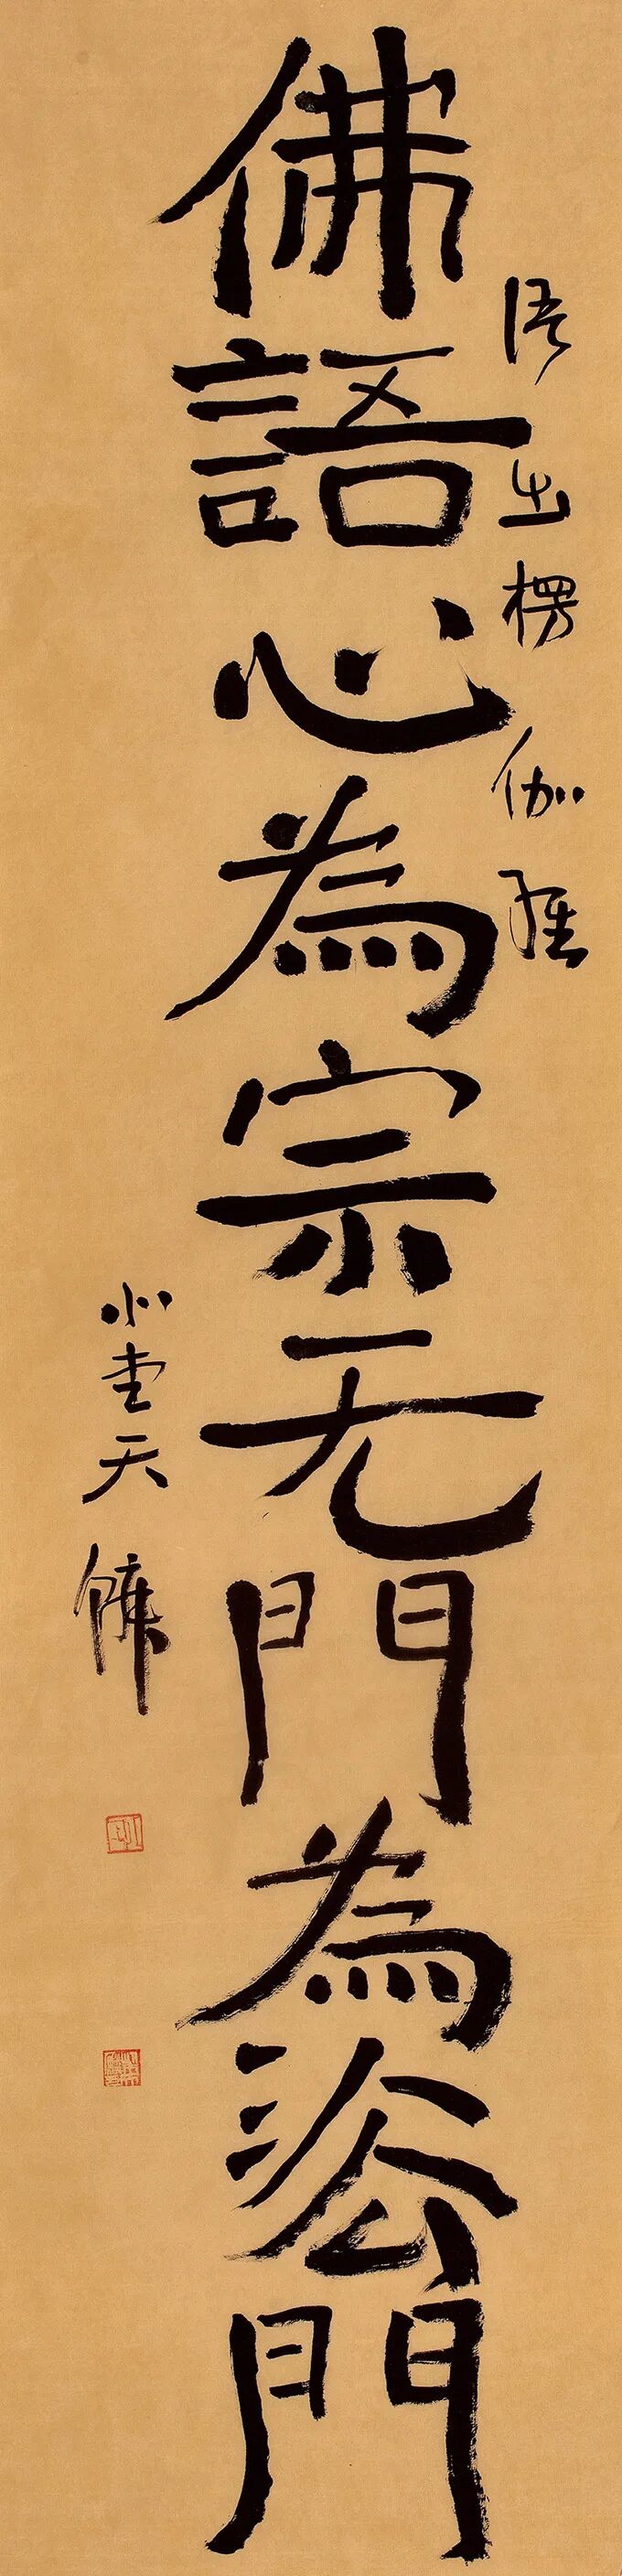 語出楞伽經
佛語心為宗无門為法門
堂天